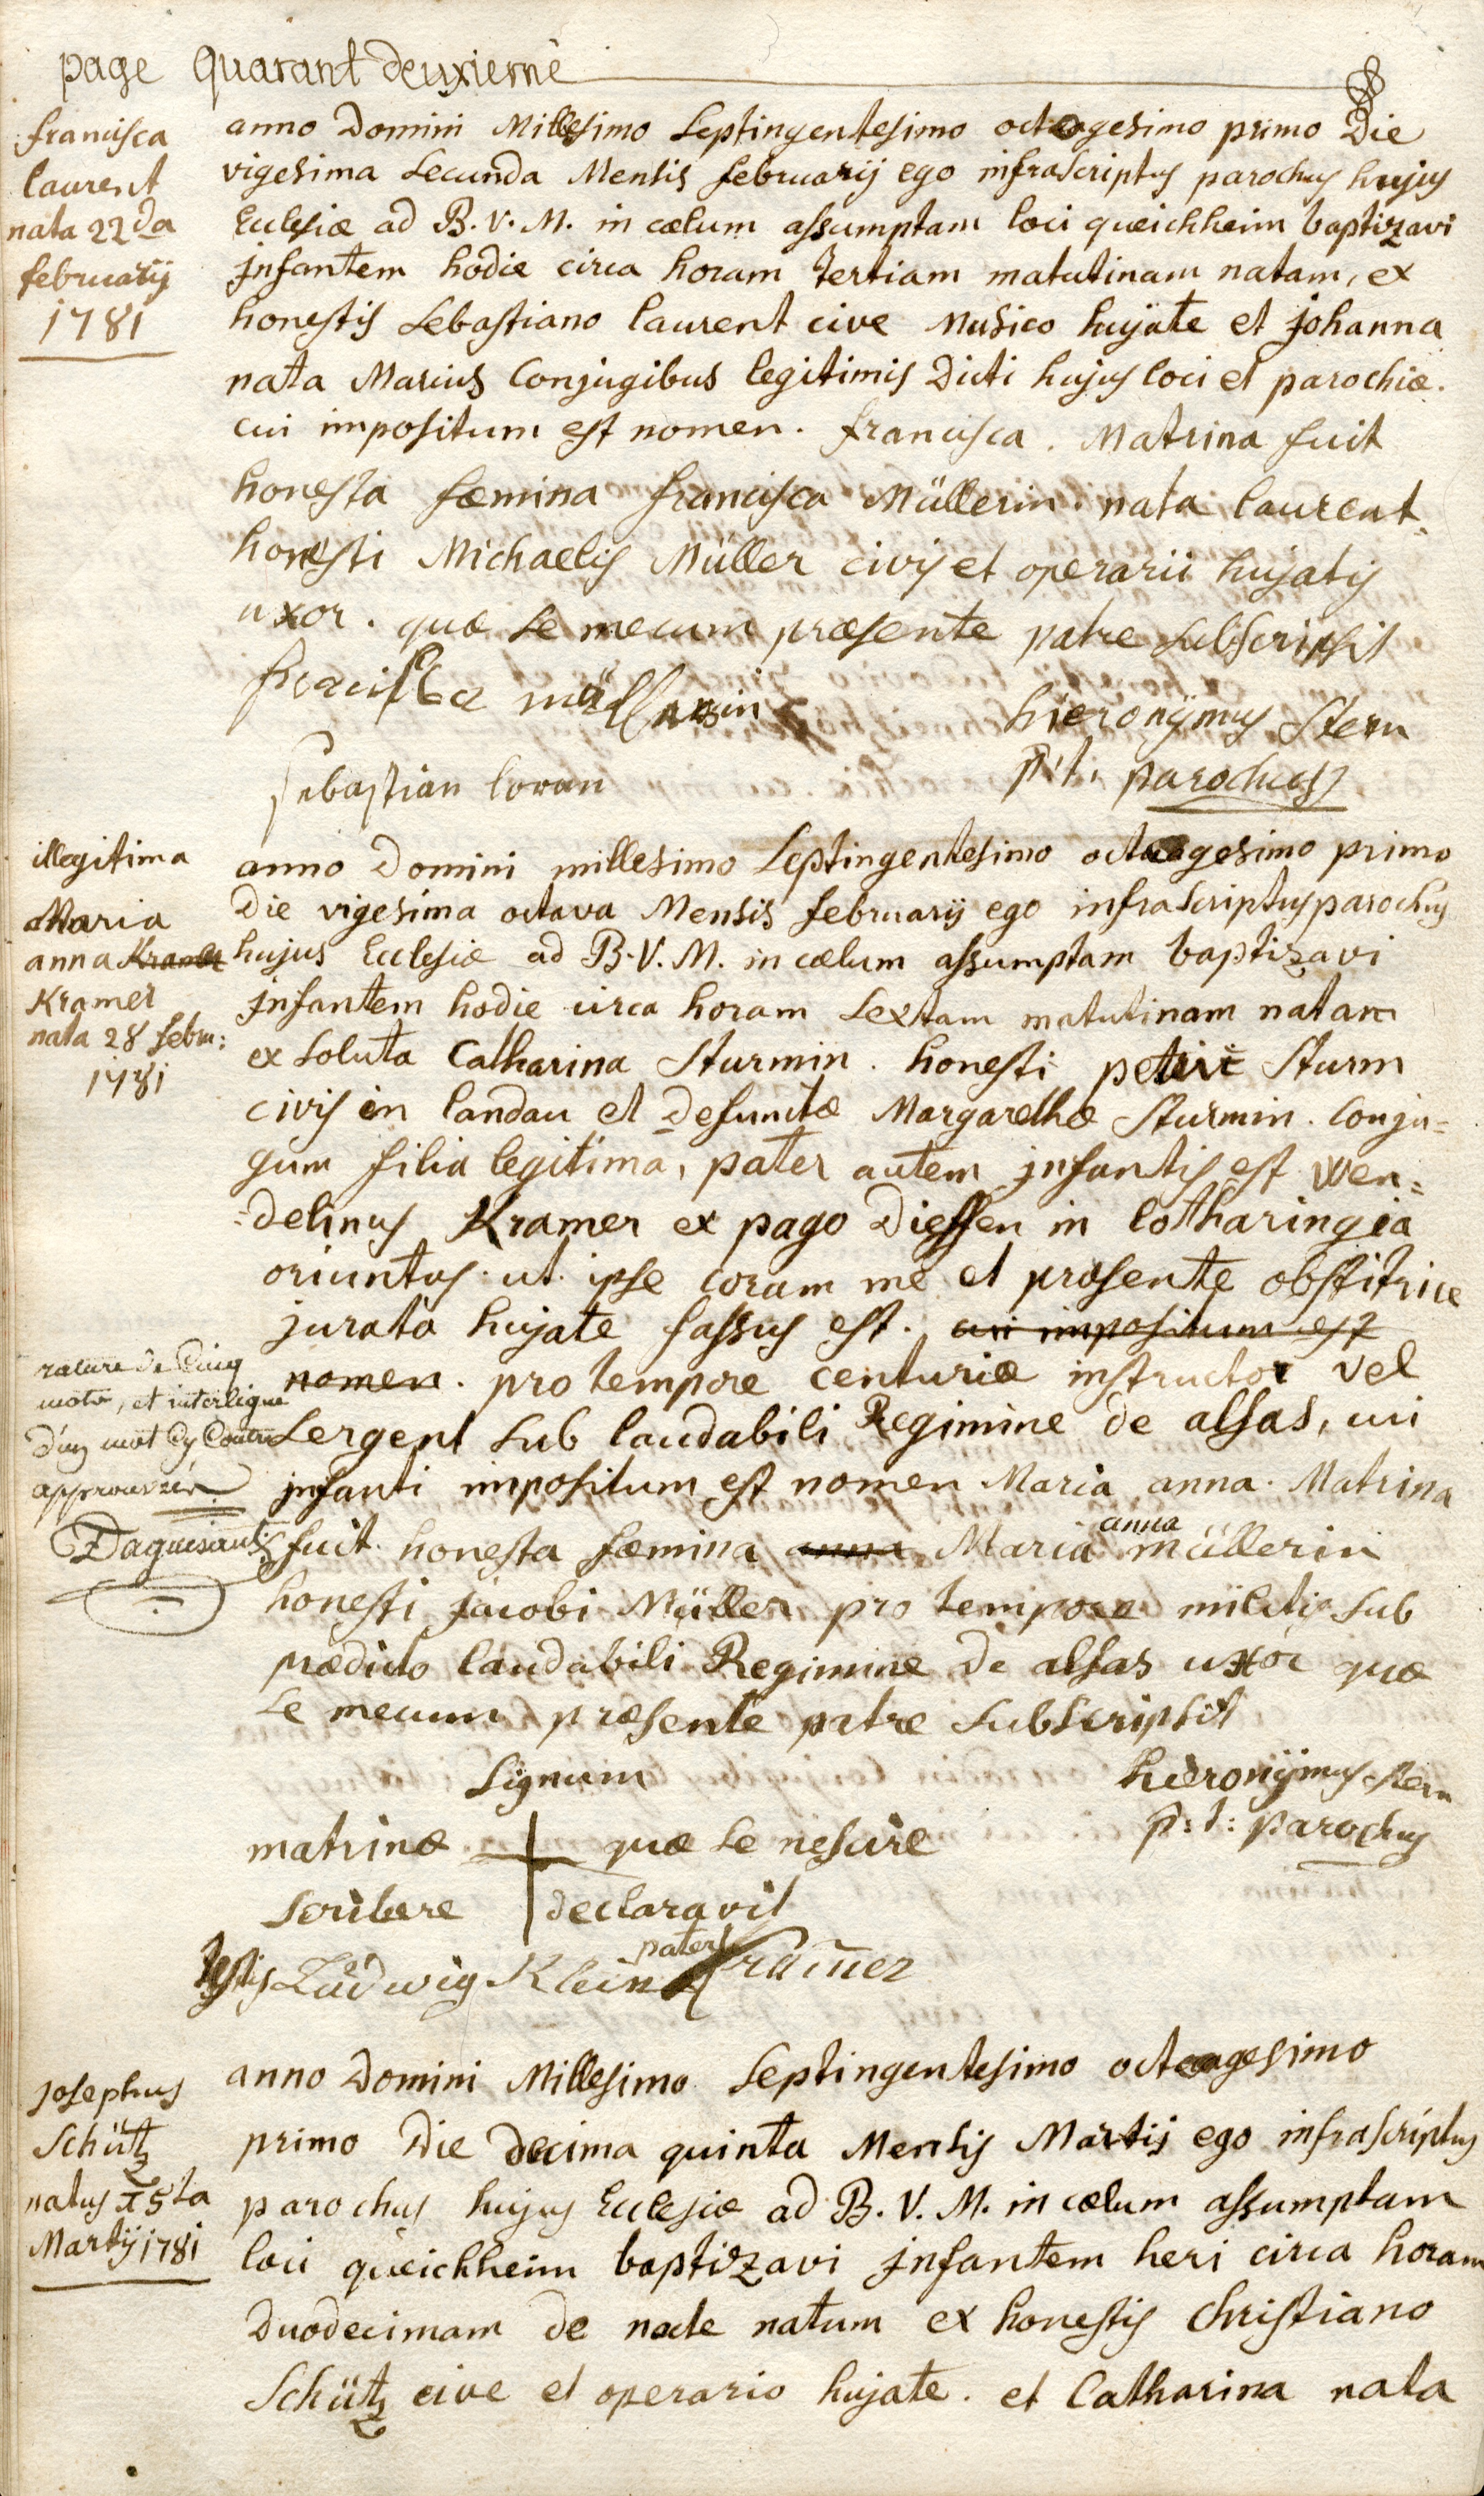 page quarant deuxieme
francisca
laurent
nata 22da
februarij
1781
anno Domini Millesimo septingentesimo octogesimo primo Die
vigesima secunda Mensis februarij ego infrascriptus parochus hujus
Ecclesiæ ad B. V. M. in cælum assumptam loci queichheim baptizavi
jnfantem hodie circa horam tertiam matutinam natam, ex
honestis sebastiano laurent cive Musico hujate et johanna
nata Marius Conjugibus legitimis Dicti hujus loci et parochiæ.
cui impositum est nomen. francisca. Matrina fuit
honesta fæmina francisca Müllerin. nata laurent.
honesti Michaelis Müller civis et operarii hujatis
uxor. quæ se mecum præsente patre subscripsit
francisca müllerin
hieronijmus Stern
p: t: parochus
Sebastian loran
illegitima
Maria
anna Kramer
Kramer
nata 28 febru:
1781
anno Domini millesimo septingentesimo octogesimo primo
Die vigesima octava Mensis februarij ego infrascriptus parochus
hujus Ecclesiæ ad B. V. M. in cælum assumptam baptizavi
jnfantem hodie circa horam sextam matutinam natam
ex soluta Catharina Sturmin. honesti petri Sturm
civis in landau et defunctæ Margarethæ Sturmin. Conju=
gum filia legitima, pater autem jnfantis est wen=
=delinus Kramer ex pago Dieffen in lotharingia
oriuntus. ut ipse coram me et præsente obstitrice
jurata hujate fassus est. cui impositum est
nomen. pro tempore centuriæ instructor vel
sergent sub laudabili Regimine de alsas, cui
jnfanti impositum est nomen Maria anna. Matrina
fuit honesta fæmina anna Maria anna müllerin
honesti jacobi Müller pro tempore militis sub
prædicto laudabili Regimine de alsas uxor quæ
se mecum præsente patre subscripsit
rature de Cinq
mots, et interligne
d'un mot Cy Contre
approuvée
Daguisant
signum
hieronijmus stern
p: t: parochus
matrinæ + quæ se nescire
scribere declaravit
testis Ludwig Klein pater Kramer
josephus
Schütz
natus 15ta
Martij 1781
anno Domini Millesimo septingentesimo octogesimo
primo Die decima quinta Mensis Martij ego infrascriptus
parochus hujus Ecclesiæ ad B. V. M. in cælum assumptam
loci queichheim baptizavi jnfantem heri circa horam
Duodecimam de nocte natum ex honestis Christiano
Schütz cive et operario hujate. et Catharina nata